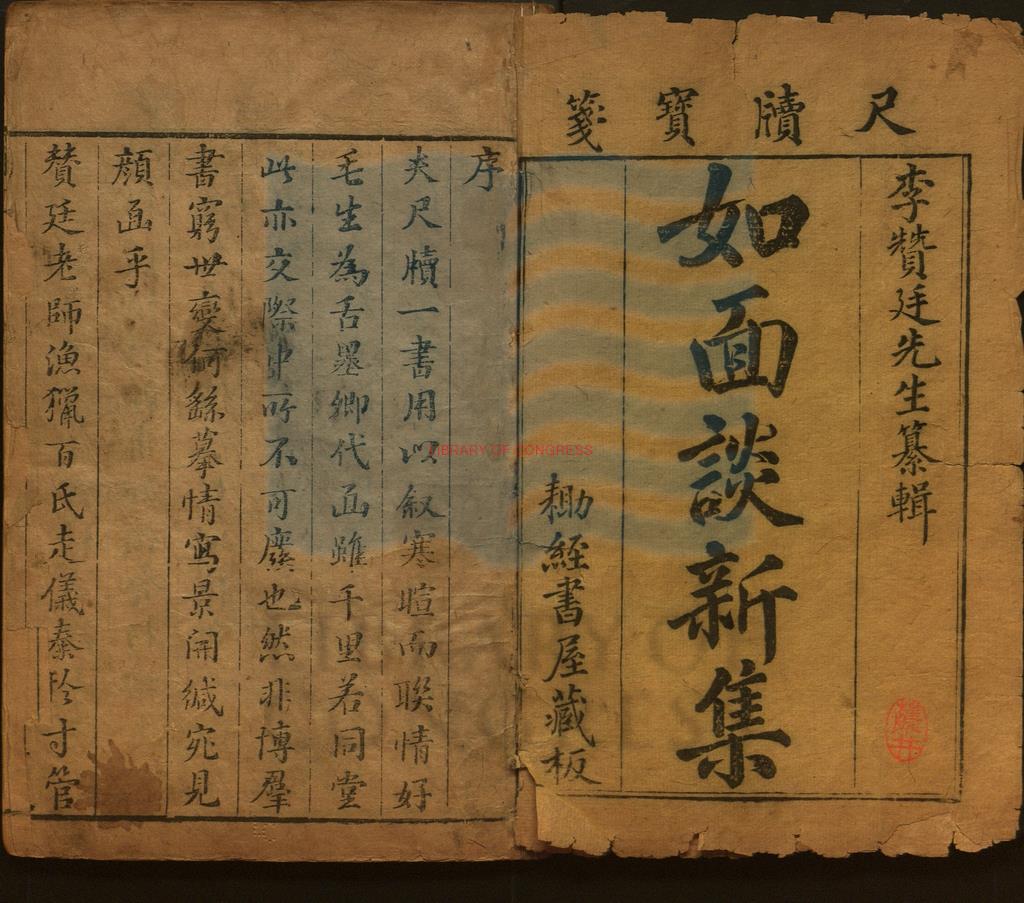 尺牘寶箋
李贊廷先生纂輯
如面談新集
耡經書屋藏板
序
夫尺牘一書用以叙寒暄而聯情好
毛生為舌墨卿代面雖千里若同堂
此亦交際中所不可廢也然非博羣
書窮世變何繇摹情寫景開緘宛見
顔面乎
贊廷老師漁獵百氏走儀秦於寸管
LIBRARY OF CONGRESS